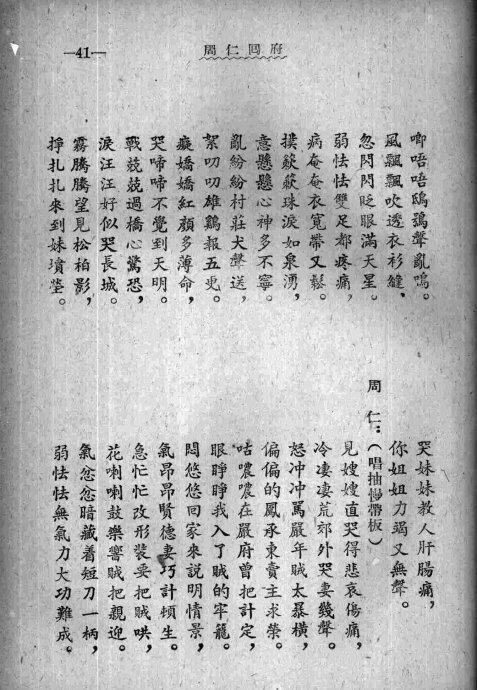 —41—
周仁囘府
唧唔唔鴟鴞聲亂鳴。
風飄飄吹透衣衫縫、
忽閃閃眨眼滿天星。
弱怯怯雙足都疼痛，
病奄奄衣寬帶又鬆。
撲簌簌珠淚如泉湧，
意懸懸心神多不寧。
亂紛紛村莊犬聲送，
絮叨叨雄鷄報五更。
癡嬌嬌紅顏多薄命，
哭啼啼不覺到天明。
戰兢兢過橋心驚恐，
淚汪汪好似哭長城。
霧騰騰望見松柏影，
掙扎扎來到妹墳塋。
哭妹妹教人肝腸痛，
你姐姐力竭又無聲。
周仁：（唱抽慢帶板）
見嫂嫂直哭得悲哀傷痛，
冷凄凄荒郊外哭妻幾聲。
怒冲冲罵嚴年賊太暴橫，
偏偏的鳳承東賣主求榮。
咕噥噥在嚴府曾把計定，
眼睜睜我入了賊的牢籠。
悶悠悠回家來說明情景，
氣昂昂賢德妻巧計頓生。
急忙忙改形裝要把賊哄，
花喇喇鼓樂響賊把親迎。
氣忿忿暗藏着短刀一柄，
弱怯怯無氣力大功難成。